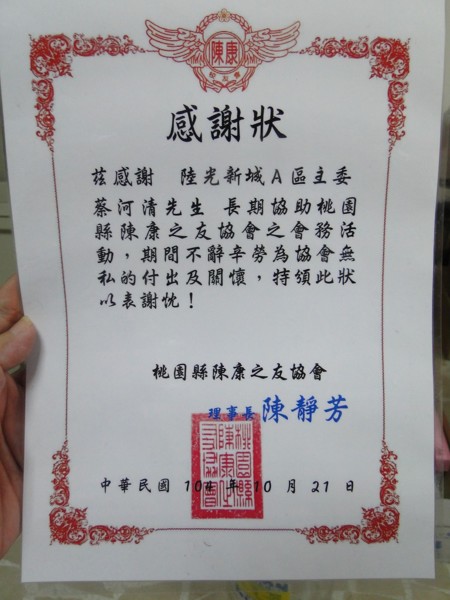 陳康
感謝狀
茲感謝 陸光新城A區主委
蔡河清先生 長期協助桃園
縣陳康之友協會之會務活
動，期間不辭辛勞為協會無
私的付出及關懷，特頒此狀
以表謝忱！
桃園縣陳康之友協會
理事長 陳靜芳
桃園縣陳康之友協會
中華民國 104 年 10 月 21 日